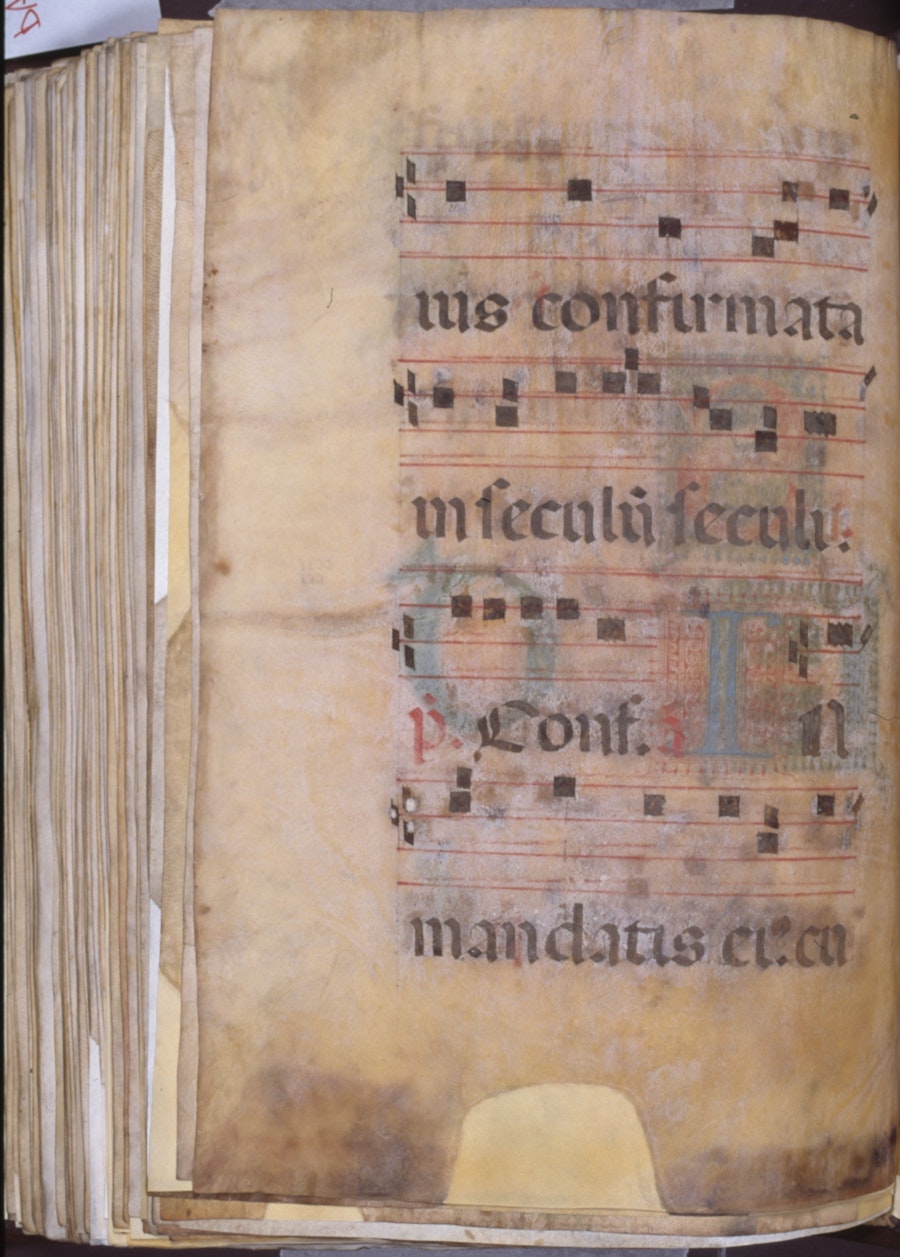 ius confirmata
in seculū seculi.
p̄. Conf. ā IN
mandatis ei? cu